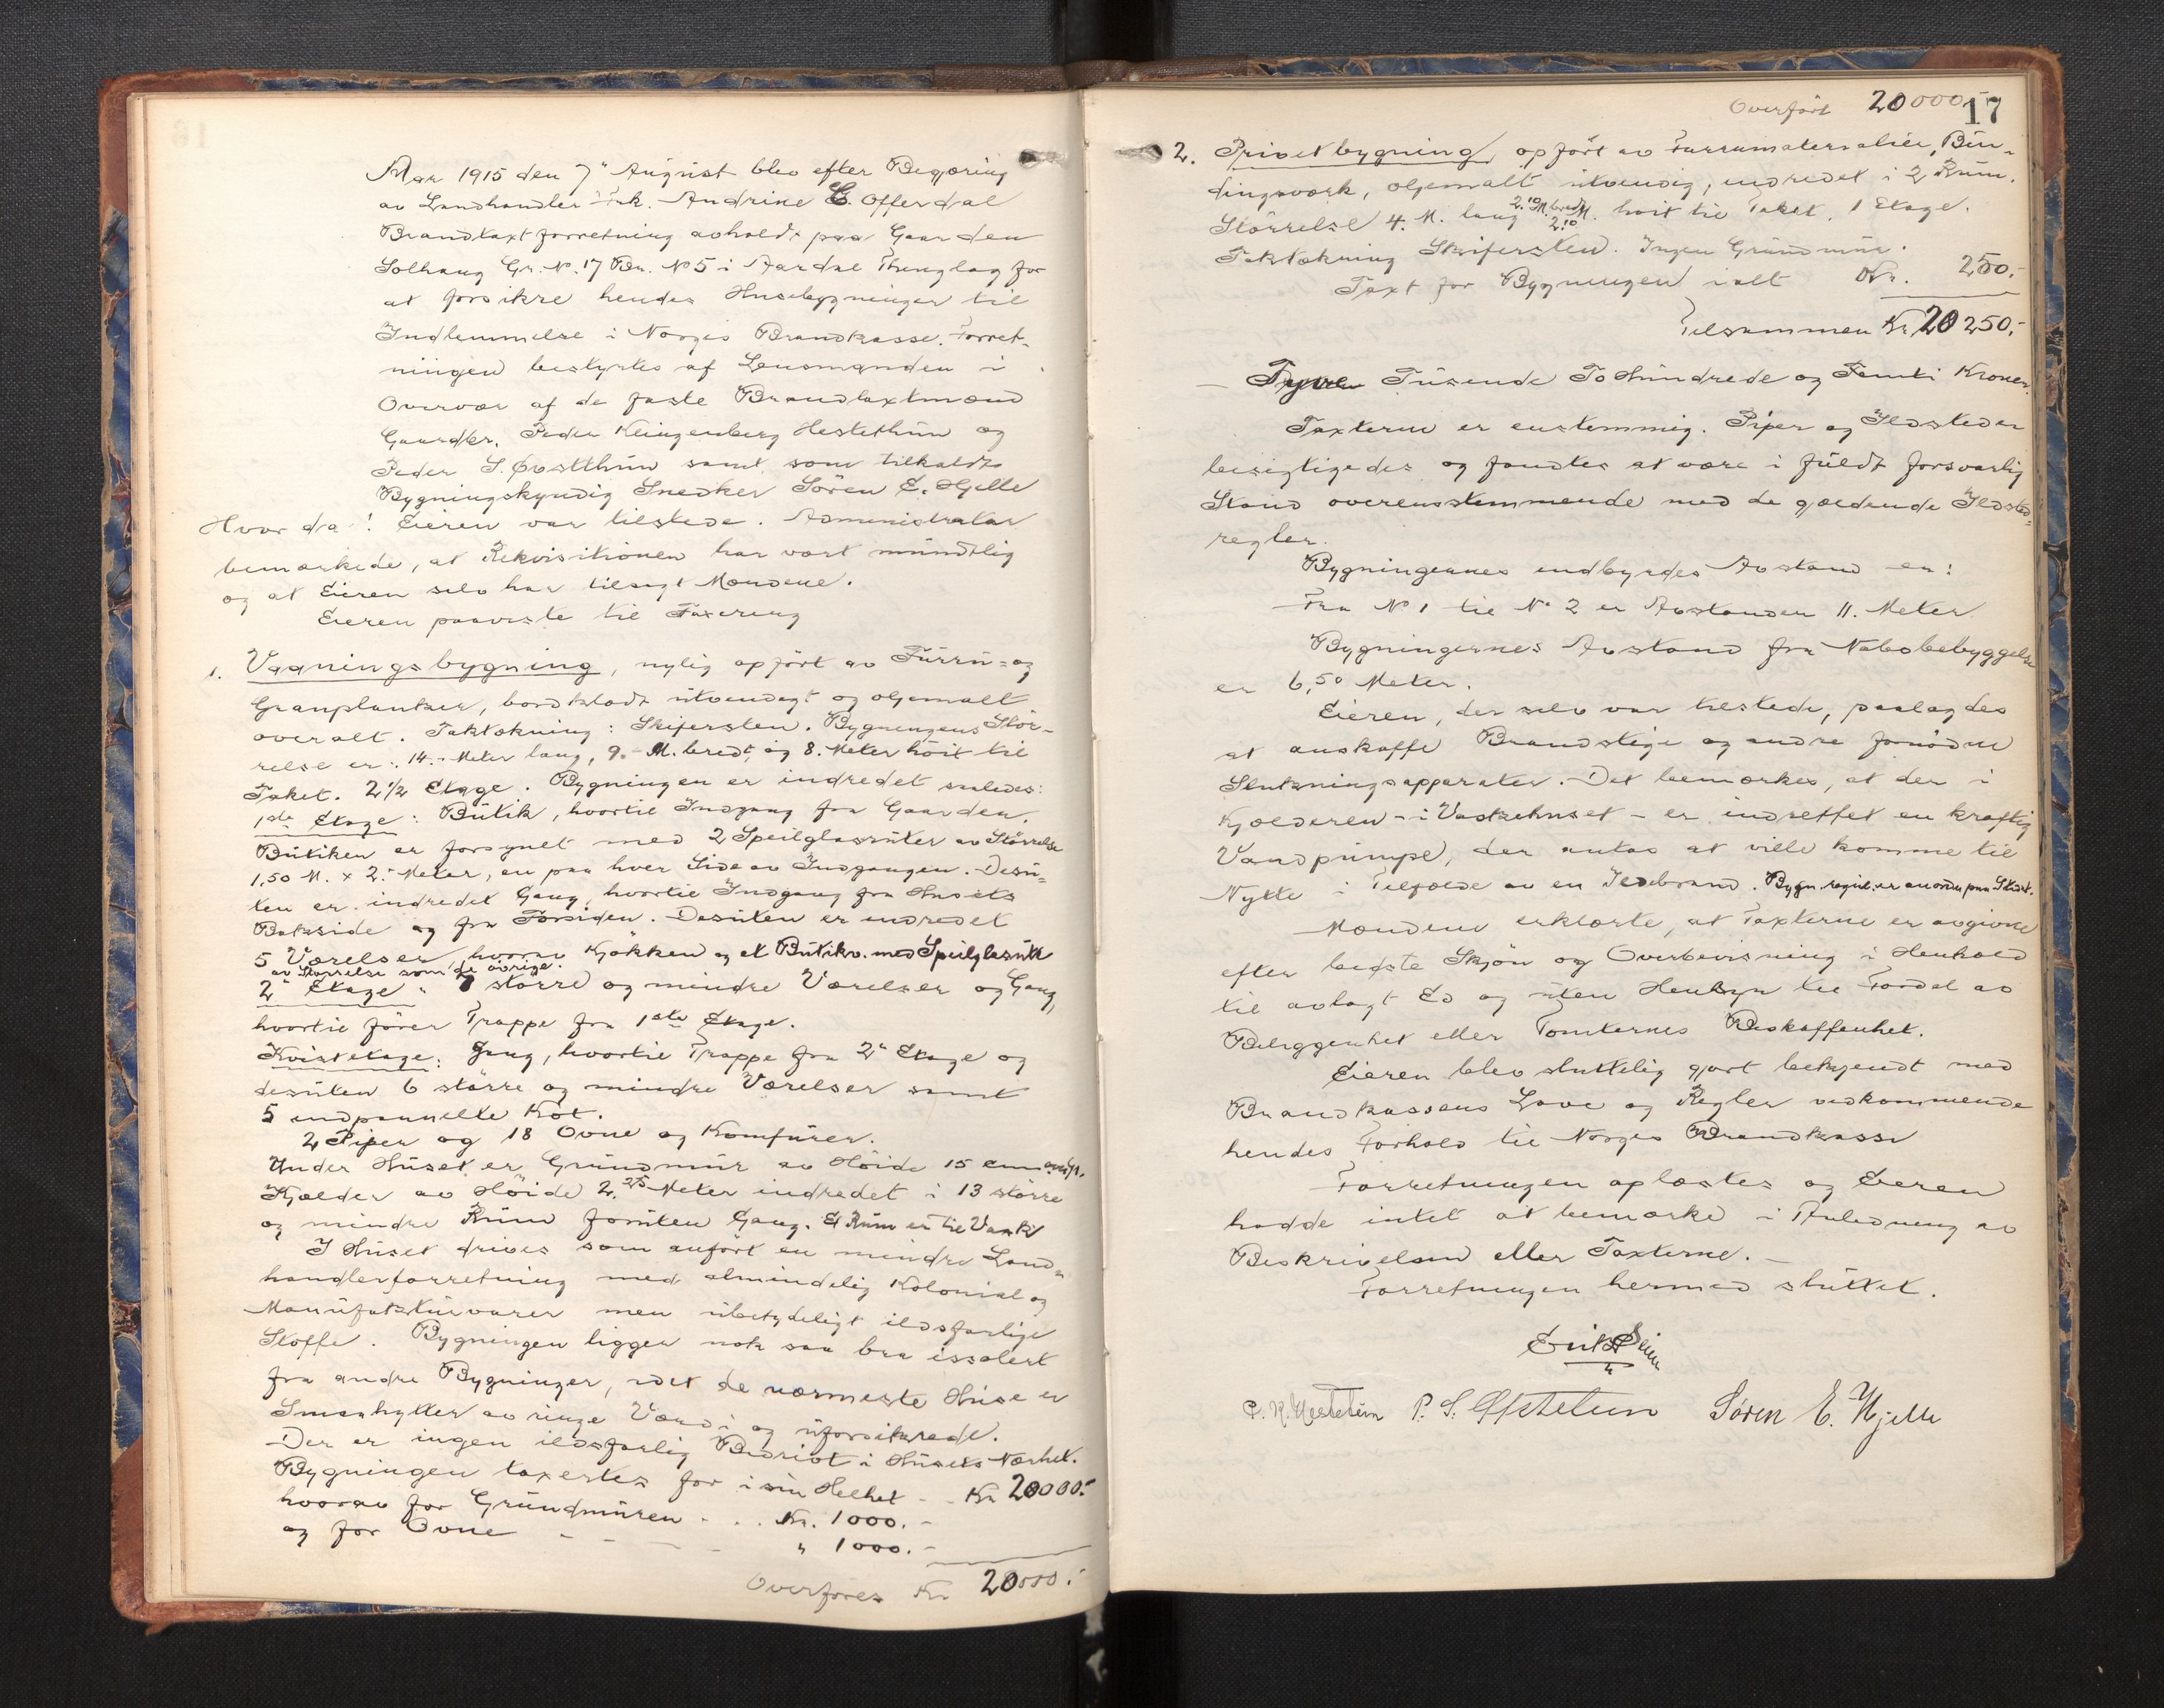 Aar 1915 den 7" August blev efter Begjæring
av Landhandler Frk. Andrine E. Offerdal
Brandtaxtforretning avholdt paa Gaarden
Solhaug Gr. No. 17 Br. No 5 i Aardal Thinglag for
at forsikre hendes Husebygninger til
Indlemmelse i Norges Brandkasse. Forret-
ningen bestyrtes af Lensmanden i
Overvær af de faste Brandtaxtmænd
Gaardbr. Peder Klingenberg Hestethun og
Peder S. Øvstthun samt som tilkaldt
Bygningskyndig Snedker Sören E. Hjelle
Hvorda! Eieren var tilstede. Administrator
bemærkede, at Rekvisitionen har vært mundtlig
og at Eieren selv har tilsagt Mændene.
Eieren paaviste til Taxering
1. Vaaningsbygning, nylig opfört av Furru= og
Granplanker, bordklædt utvendigt og oljemalt
overalt. Taktækning: Skifersten. Bygningens Stör-
relse er: 14.- Meter lang, 9.- M. bredt, og 8. Meter höit til
Taket. 2 1/2 Etage. Bygningen er indredet saaledes:
1ste Etage: Butik, hvortil Indgang fra Gaarden.
Butiken er forsynet med 2 Speilglasruter av Störrelse
1,50 M. x 2.- Meter, en paa hver Side av Indgangen. Desu-
ten er indredet Gang, hvortil Indgang fra Husets
Bakside og fra Forsiden. Desuten er indredet
5 Værelser, hvorav Kjökken og et Butikv. med Speilglasrute
av Störrelse som de övrige.
2" Etage " 7 större og mindre Værelser og Gang,
hvortil förer Trappe fra 1ste Etage.
Kvistetage: Gang, hvortil Trappe fra 2" Etage og
desuten 6 större og mindre Værelser samt
5 indpannelte Kot.
2 Piper og 18 Ovne og Komfurer.
Under Huset er Grundmur av Höide 15 cm
Kjælder av Höide 2,25 Meter indredet i 13 större
og mindre Rum foruten Gang. Et Rum er til Vask
I Huset drives som anfört en mindre Land-
handlerforretning med almindelig Kolonial og
Manufakturvarer men ubetydeligt ildsfarlige
Stoffe. Bygningen ligger nok saa bra issolert
fra andre Bygninger, idet de nærmeste Huse er
Smaahytter av ringe Værdi og uforsikrede.
Der er ingen ildsfarlig Bedrivt i Husets Nærhet.
Bygningen taxertes for i sin Helhet - - Kr 20000.-
hvorav for Grundmuren - . . Kr. 1000.-
og for Ovne - - - - " 1000.-
Overföres Kr 20000.-
Overfört 20000.-
17
2. Privetbygning opfört av Furrumaterialier, Bin-
dingsværk, oljemalt utvendig, indredet i 2 Rum.
Störrelse 4. M. lang 2.10 M. bred 2.10 M. höit til Taket. 1 Etage.
Taktækning Skifersten. Ingen Grundmur.
Taxt for Bygningen ialt Kr. 250.-
Tilsammen Kr. 20 250.-
- Tyve Tusende To Hundrede og Femti Kroner
Taxterne er enstemmig. Piper og Ildsteder
besigtigedes og fandtes at være i fuldt forsvarlig
Stand overensstemmende med de gjældende Ildsted-
regler.
Bygningernes indbyrdes Avstand er:
Fra No 1 til No 2 er Avstanden 11. Meter
Bygningernes Avstand fra Nabobebyggelse
er 6,50 Meter.
Eieren, der selv var tilstede, paalagdes
at anskaffe Brandstige og andre fornödne
Slukningsapparater. Det bemærkes, at der i
Kjælderen - i Vaskehuset - er indrettet en kraftig
Vandpumpe, der antas at ville komme til
Nytte i Tilfælde av en Ildebrand. Bygn. regul. er anordn. paa Stedet.
Mændene erklærte, at Taxterne er avgivne
efter bedste Skjön og Overbevisning i Henhold
til avlagt Ed og uten Hensyn til Fordel av
Beliggenhet eller Tomternes Beskaffenhet.
Eieren blev sluttelig gjort bekjendt med
Brandkassens Love og Regler vedkommende
hendes Forhold til Norges Brandkasse
Forretningen oplæstes og Eieren
hadde intet at bemærke i Anledning av
Beskrivelsen eller Taxterne. -
Forretningen hermed sluttet.
P. K. Hestetun P. S. Øfstetun Sören E. Hjelle